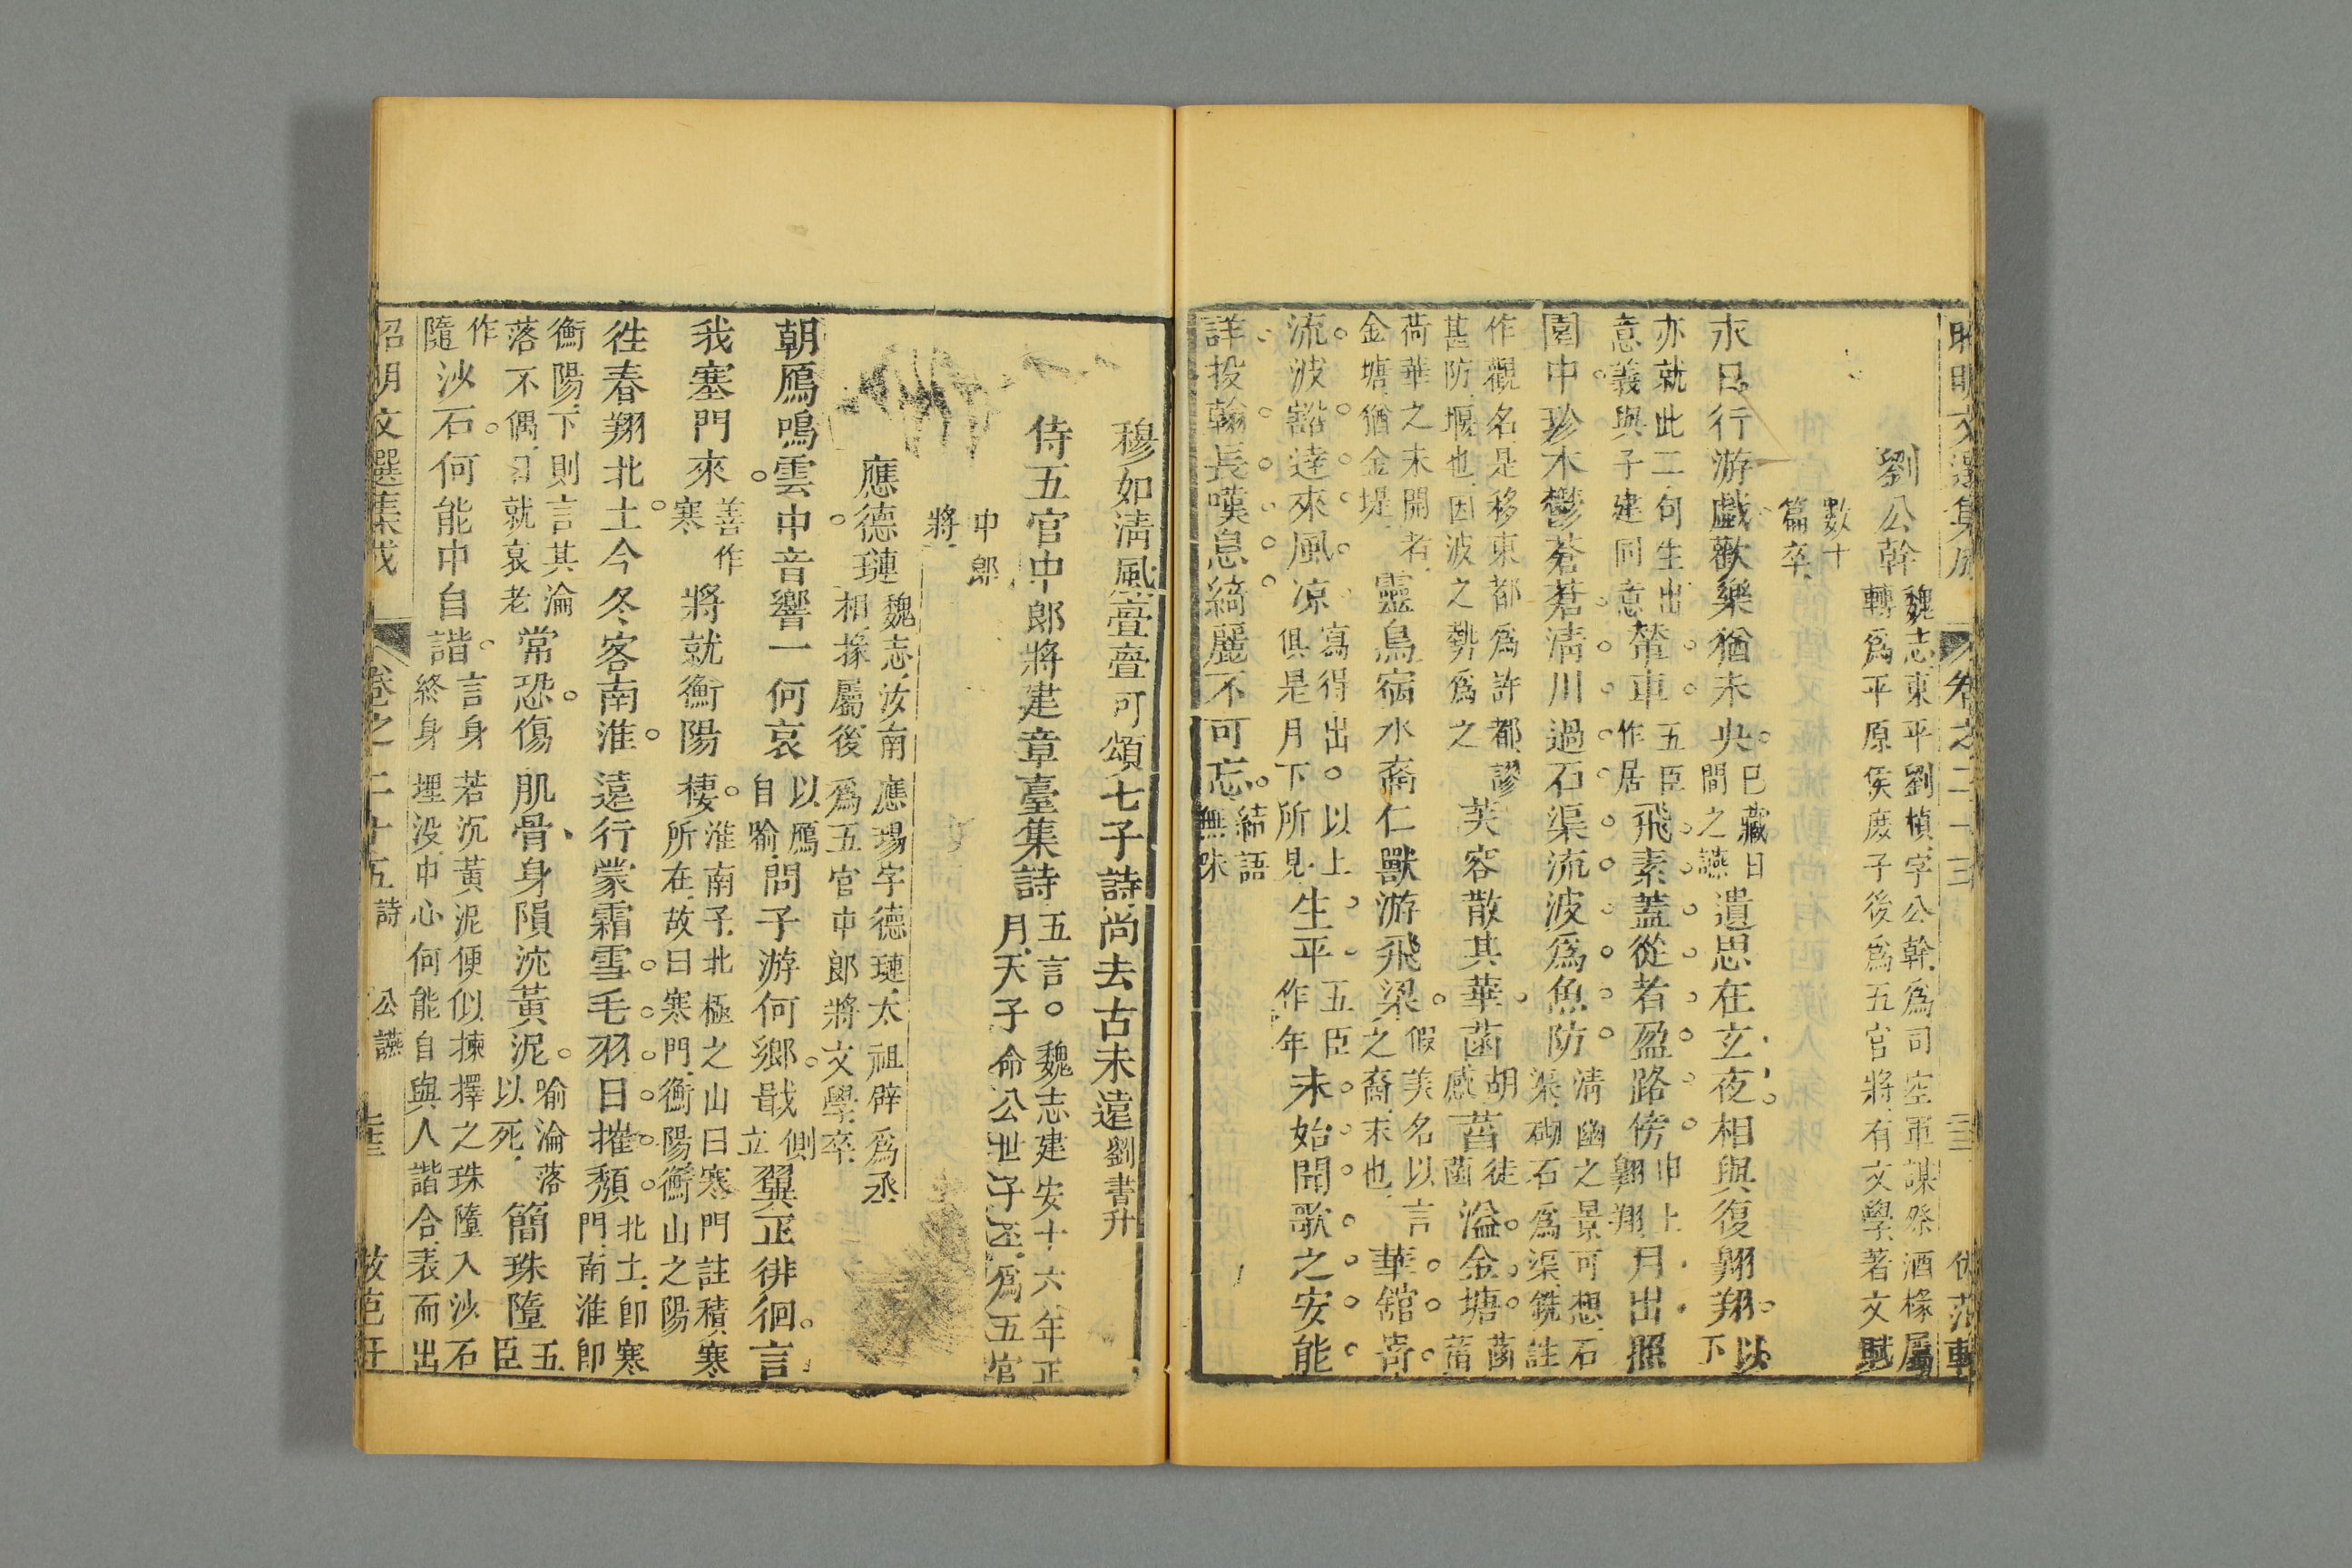 昭明文選集成 卷之二十三
劉公幹 魏志東平劉楨字公幹爲司空軍謀祭酒掾屬轉爲平原侯庶子後爲五官將有文學著文賦
數十篇卒
永日行游戲歡樂猶未央已藏日間之讌遺思在玄夜相與復翺翔以下
亦就此二句生出意義與子建同意輦車五臣作居飛素蓋從者盈路傍中上翺翔月出照
園中珍木鬱蒼蒼清川過石渠流波爲魚防清幽之景可想石渠砌石爲渠銑註
作觀名是移東都爲許都謬甚防堰也因波之勢爲之芙容散其華菡胡感萏徒菡溢金塘菡萏
荷華之未開者金塘猶金堤靈鳥宿水裔仁獸游飛梁假美名以言之裔末也華館寄
流波豁達來風凉寫得出以上俱是月下所見生平五臣作年未始聞歌之安能
詳投翰長嘆息綺麗不可忘結語無味
穆如清風亹亹可頌七子詩尚去古未遠劉書升
侍五官中郎將建章臺集詩五言魏志建安十六年正月天子命公世子丕爲五官
中郎將
應德璉魏志汝南應瑒字德璉太祖辟爲丞相掾屬後爲五官中郎將文學卒
朝鴈鳴雲中音響一何哀以鴈自喻問子游何鄉戢側立翼正徘徊言
我塞門來善作寒將就衡陽棲淮南子北極之山曰寒門註積寒所在故曰寒門衡陽衡山之陽
徃春翔北土今冬客南淮遠行蒙霜雪毛羽日摧頹北土即寒門南淮即
衡陽下則言其淪落不偶日就哀老常恐傷肌骨身隕沈黃泥喻淪落以死簡珠墮五臣
作隨沙石何能中自諧言身若沉黃泥便似揀擇之珠墮入沙石終身埋没中心何能自與人諧合表而出
昭明文選集成 卷之二十五詩 公讌